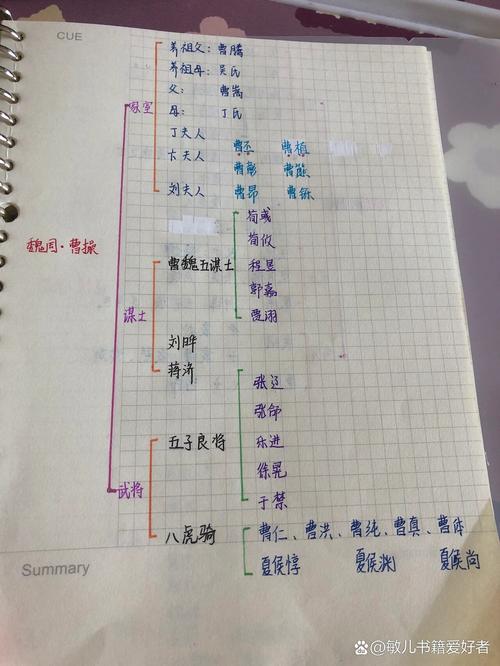 CUE
养祖父：曹腾
养祖母：吴氏
父：曹嵩
家室
母：丁氏
丁夫人
卞夫人 曹丕 曹植
曹彰 曹熊
刘夫人 曹昂 曹铄
荀彧
魏国·曹操
荀攸
曹魏五谋士 程昱
郭嘉
谋士
贾诩
刘晔
蒋济
张辽
张郃
五子良将 乐进
徐晃
武将
于禁
八虎骑 曹仁、曹洪、曹纯、曹真、曹休
夏侯惇 夏侯渊 夏侯尚
Summary
敏儿书籍爱好者